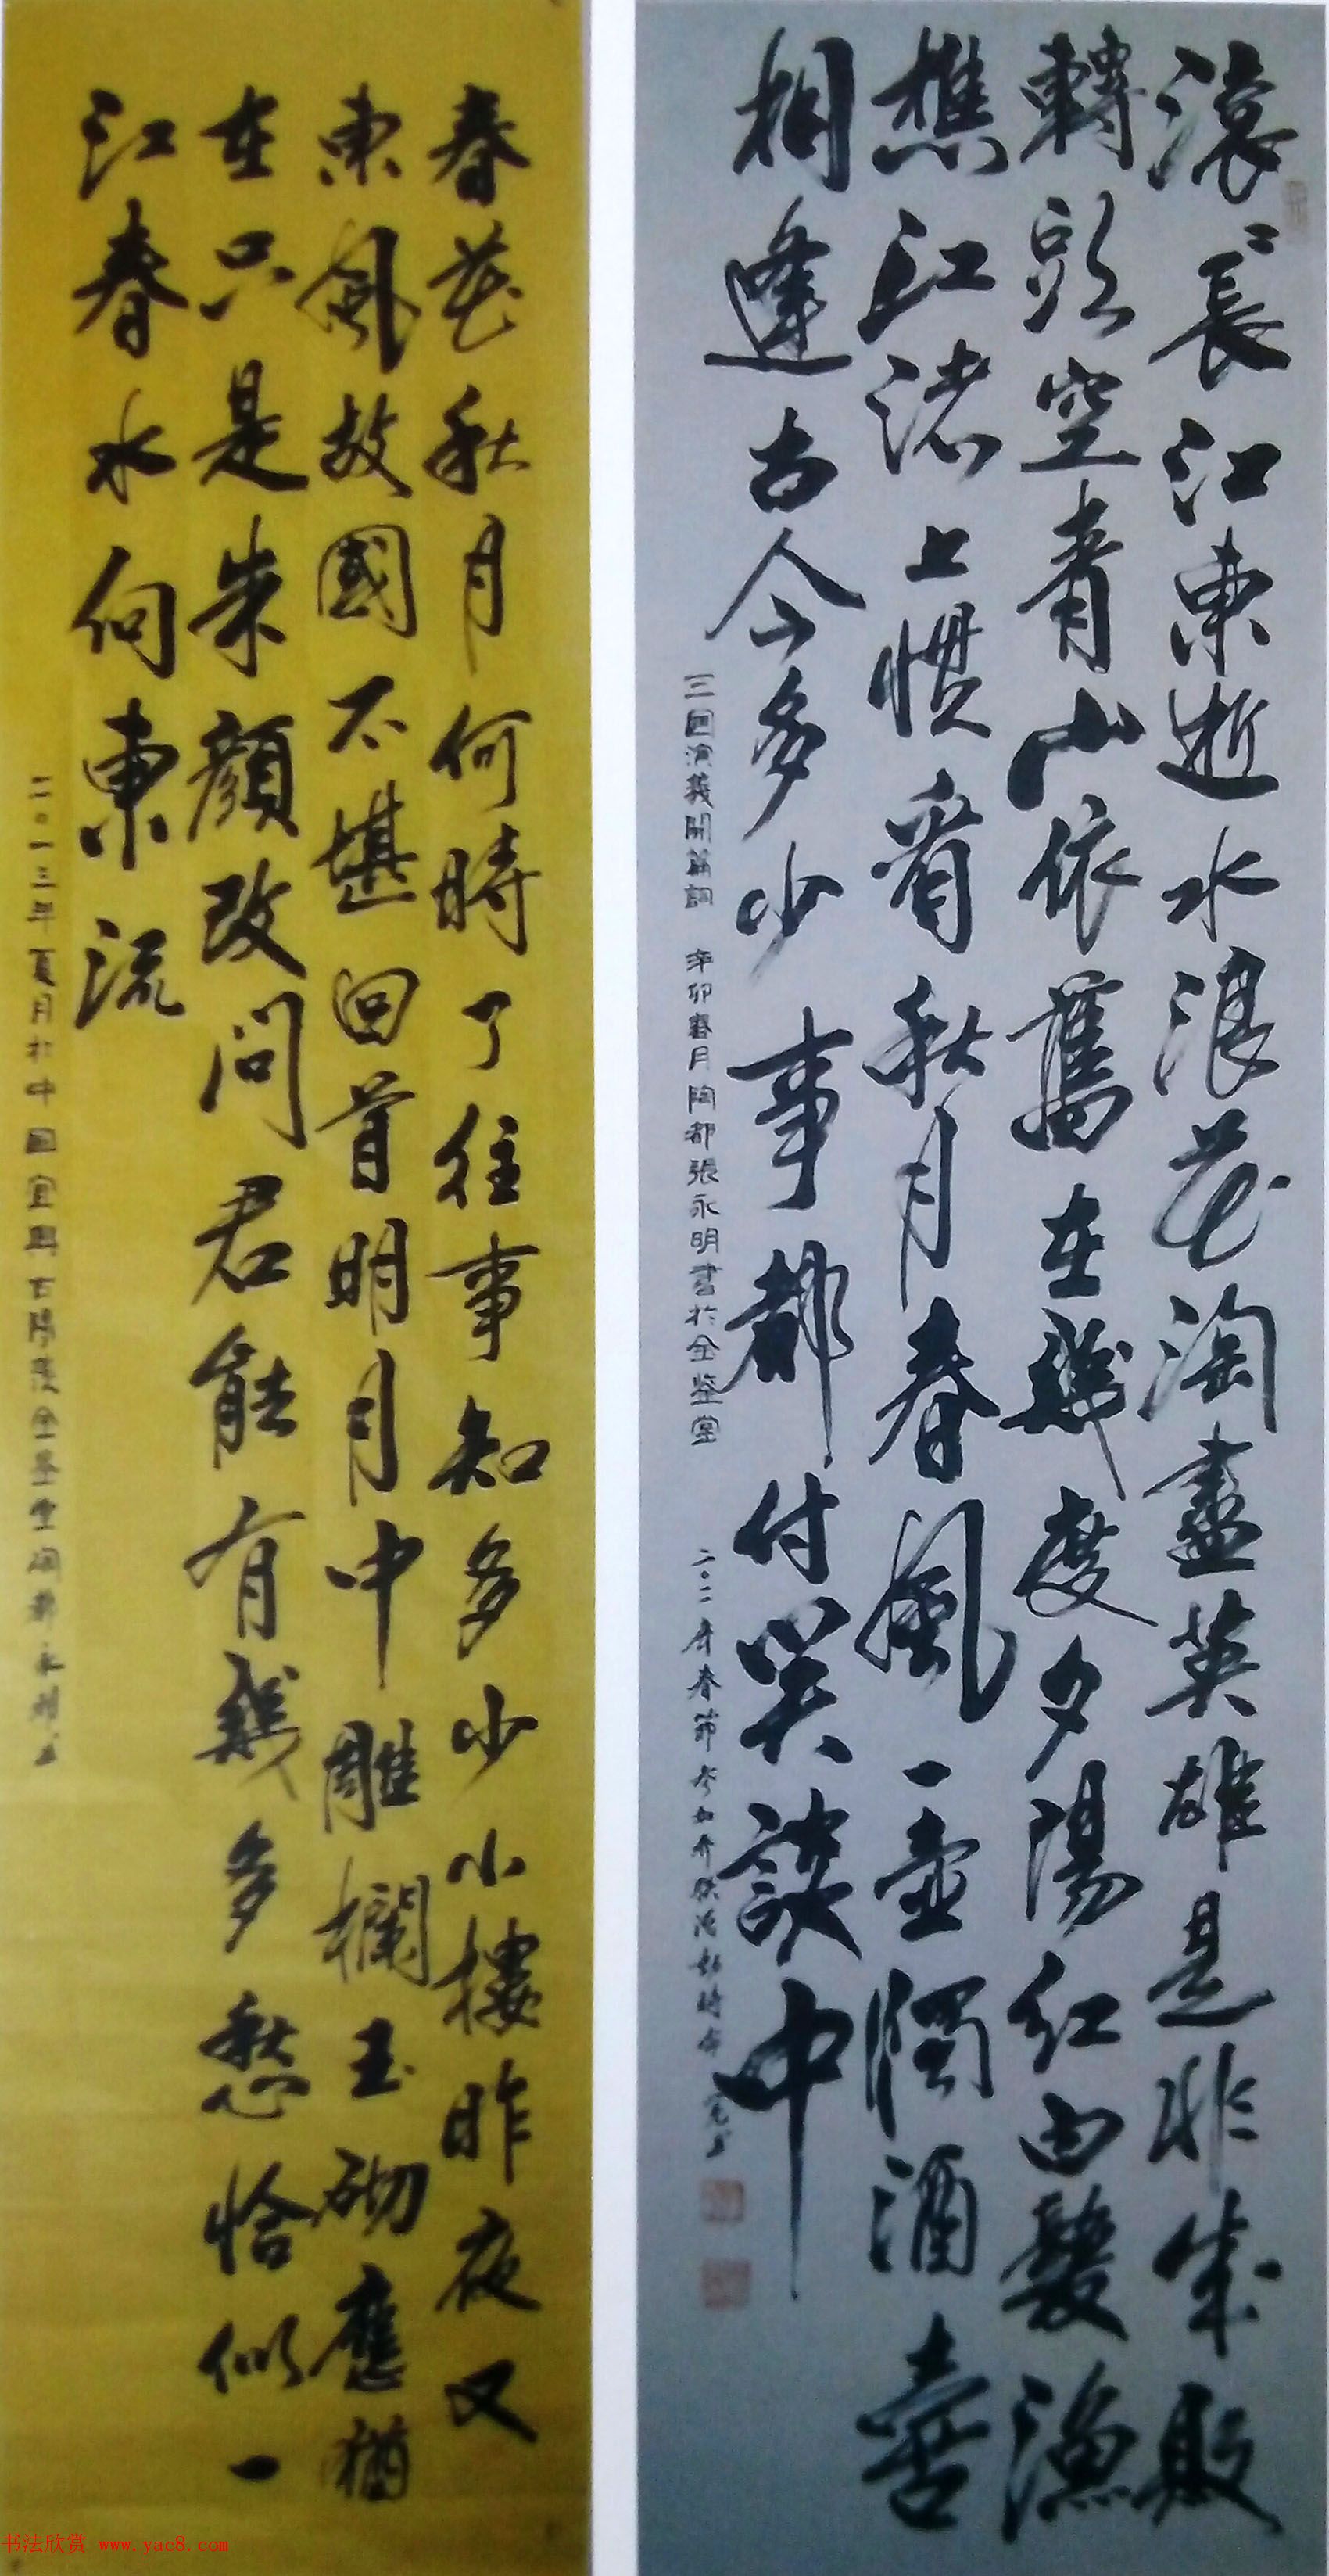 滚〻長江東逝水浪花淘盡英雄是非成敗
轉頭空青山依舊在幾度夕陽紅白髮漁
樵江渚上慣看秋月春風一壺濁酒喜
相逢古今多少事都付笑談中
三國演義開篇詞 辛卯春月陶都張永明書於金鉴堂 二〇一一年春節參加
春花秋月何時了往事知多少小樓昨夜又
東風故國不堪回首明月中雕欄玉砌應猶
在只是朱顏改問君能有幾多愁恰似一
江春水向東流
二〇一三年夏月於中國宜興古陽羨金鉴堂陶都永明书
书法欣赏 www.yac8.com